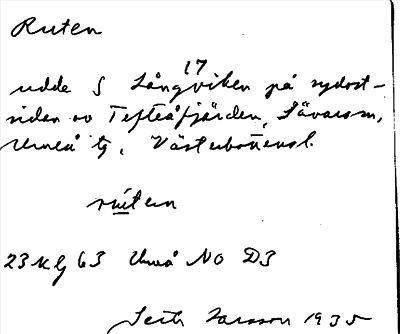 Ruten
17
udde S Långviken på sydost-
sidan av Tefteåfjärden, Sävars sn,
Umeå tg, Västerbottensl.
rutən
23 Kg 63 Umeå NO D3
Seth Larsson 1935